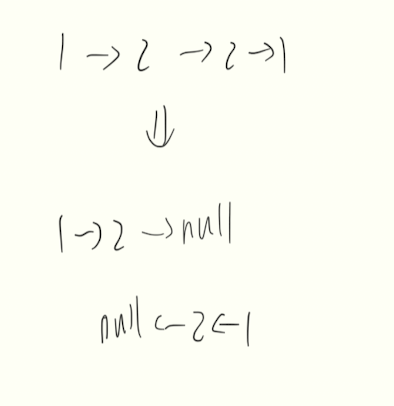 1 → 2 → 2 → 1
⇓
1 → 2 → null
null ← 2 ← 1